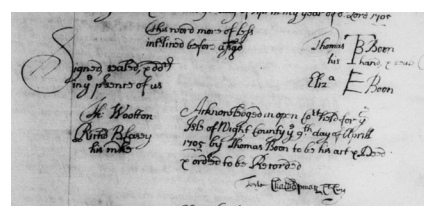 in my year of o Lord 1705
the word more or less
intlined before asigd
Thomas B Boon
his hand, & seal
Signed, sealed, & deld
in ye psence of us
Eliz a E Boon
Tho Wootton
Richd Blasey
his mke
Acknowledged in open Cort held for ye
Isle of Wight County ye 9th day of Aprill
1705 by Thomas Boon to be his act & Deed
& orderd to be Recorded
Test Cha Chapman Cl Cur